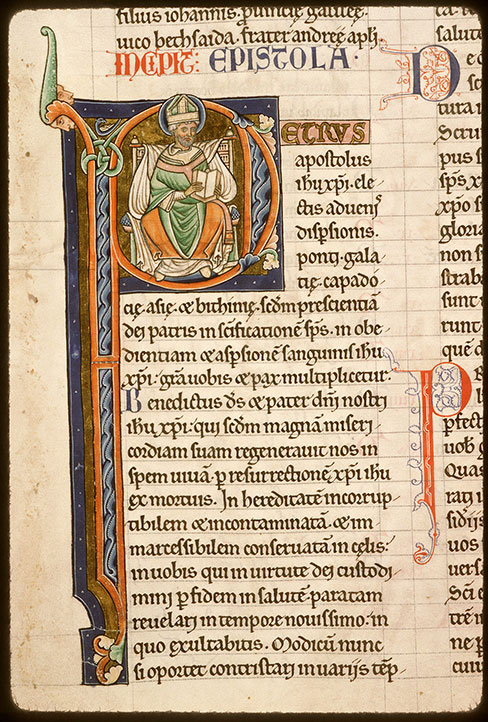 filius iohannis. ꝓuincie galilee.
uico bethsaida. frater andree apłi.
INCIPIT: EPISTOLA·
PETRVS
apostolus
ihu xp̄i. ele
ctis aduenis
dispsionis.
ponti gala
tie. capado
cie. asie. & bithinie. sedm prescientiā
dei patris in scificatione sp̄s. in obe
dientiam & aspsionē sanguinis ihu
xp̄i. gr̄a uobis & pax multiplicetur.
Benedictus d̄s & pater dn̄i nostri
ihu xp̄i: qui sedm magnā miseri
cordiam suam regenerauit nos in
spem uiuā. ꝑ resurrectionē xp̄i ihu
ex mortuis. In hereditatē incorrup
tibilem & incontaminatā. & im
marcessibilem conseruatā in celis:
in uobis qui in uirtute dei custodi
mini ꝑ fidem in salutē. paratam
reuelari in tempore nouissimo: in
quo exultabitis. Modicū nunc
si oportet contristari in uarijs tēp
ca. 
salute
D
tura
Scru
pus
sp̄s
xp̄o
gloria
non
strab
sunt
runt
quē
P
ꝑfect
uob
Quas
rati
sidijs
uos
uers
Sci
trē
ne
cuiu